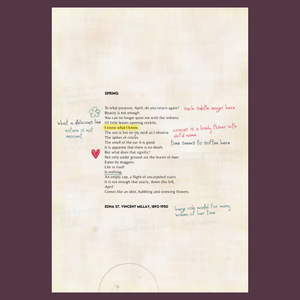 SPRING
To what purpose, April, do you return again?
Beauty is not enough.
You can no longer quiet me with the redness
Of little leaves opening stickily.
I know what I know.
The sun is hot on my neck as I observe
The spikes of crocus.
The smell of the earth is good.
It is apparent that there is no death.
But what does that signify?
Not only under ground are the brains of men
Eaten by maggots.
Life in itself
Is nothing,
An empty cup, a flight of uncarpeted stairs.
It is not enough that yearly, down this hill,
April
Comes like an idiot, babbling and strewing flowers.
EDNA ST. VINCENT MILLAY, 1892-1950
such subtle anger here
what a delicious line
nature is not innocent
crocus is a lovely flower with
name
tone seems to soften here
huge role model for many
women of her time